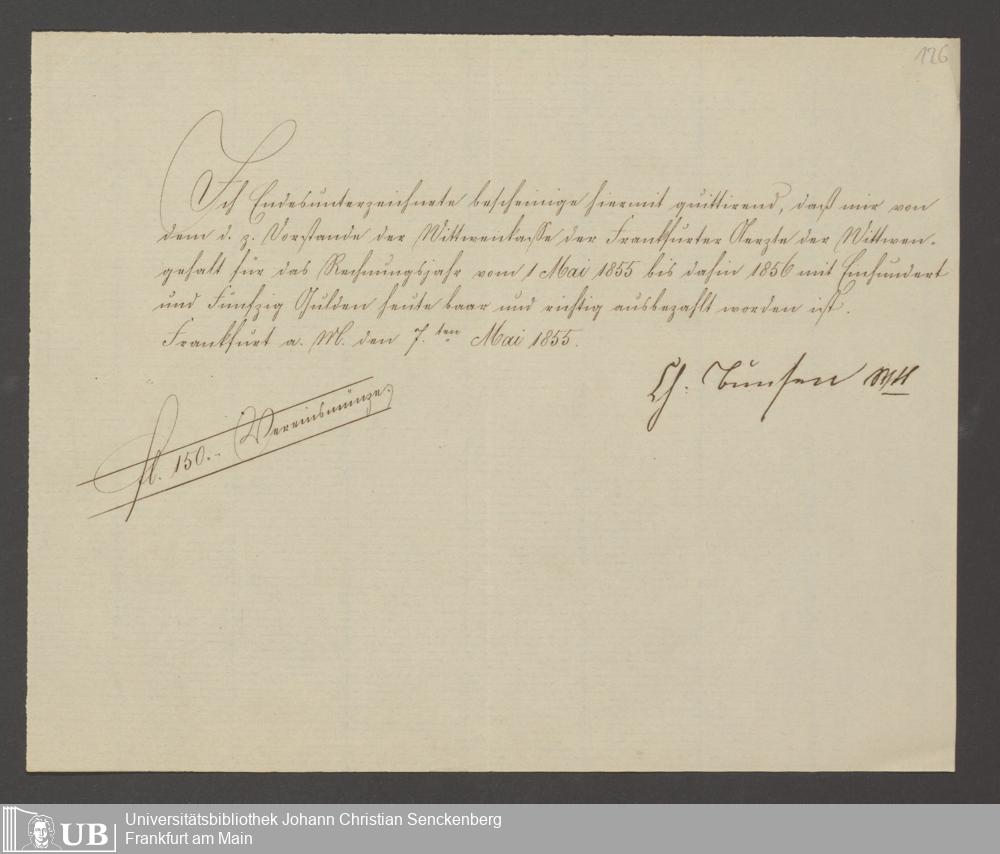 126
Ich Endesunterzeichnete bescheinige hiermit quittirend, daß mir von
dem d. z. Vorstande der Wittwenkasse der Frankfurter Aerzte der Wittwen-
gehalt für das Rechnungsjahr vom 1 Mai 1855 bis dahin 1856 mit Einhundert
und Fünfzig Gulden heute baar und richtig ausbezahlt worden ist.
Frankfurt a. M. den 7.ten Mai 1855.
Ch. Bunsen
fl. 150.- Vereinsmünze.
UB
Universitätsbibliothek Johann Christian Senckenberg
Frankfurt am Main